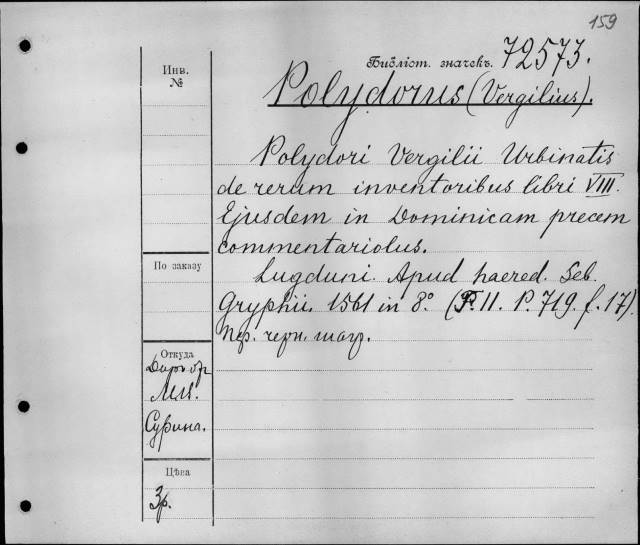 159
Библіот. значекъ. 72573.
Инв.
№
Polydorus (Vergilius).
Polydori Vergilii Urbinatis
de rerum inventoribus libri VIII.
Ejusdem in Dominicam precem
commentariolus.
По заказу
Lugduni. Apud haered. Seb.
Gryphii. 1561 in 8º. (T. II. P. 719. f. 17).
Пер. черн. шагр.
Откуда
Даръ
Цѣна
3р.